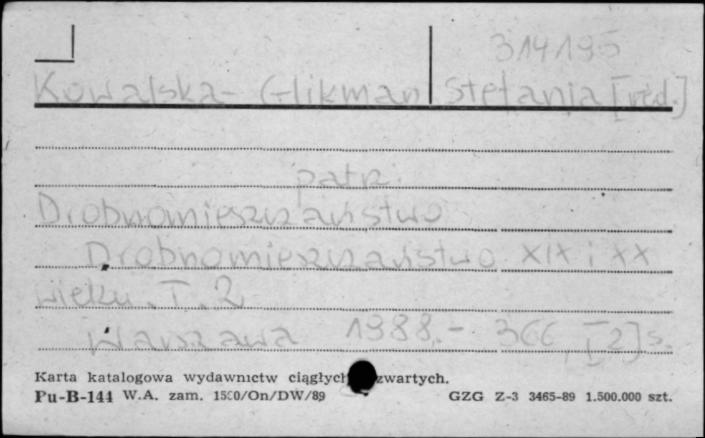 314195
Kowalska-Glikman Stefania [red.]
patrz
Drobnomieszczaństwo
Drobnomieszczaństwo XIX i XX
wieku. T. 2
Warszawa 1988.- 366, [2] s.
Karta katalogowa wydawnictw ciągłych zwartych.
Pu-B-144 W.A. zam. /On/DW/89 GZG Z-3 3465-89 1.500.000 szt.